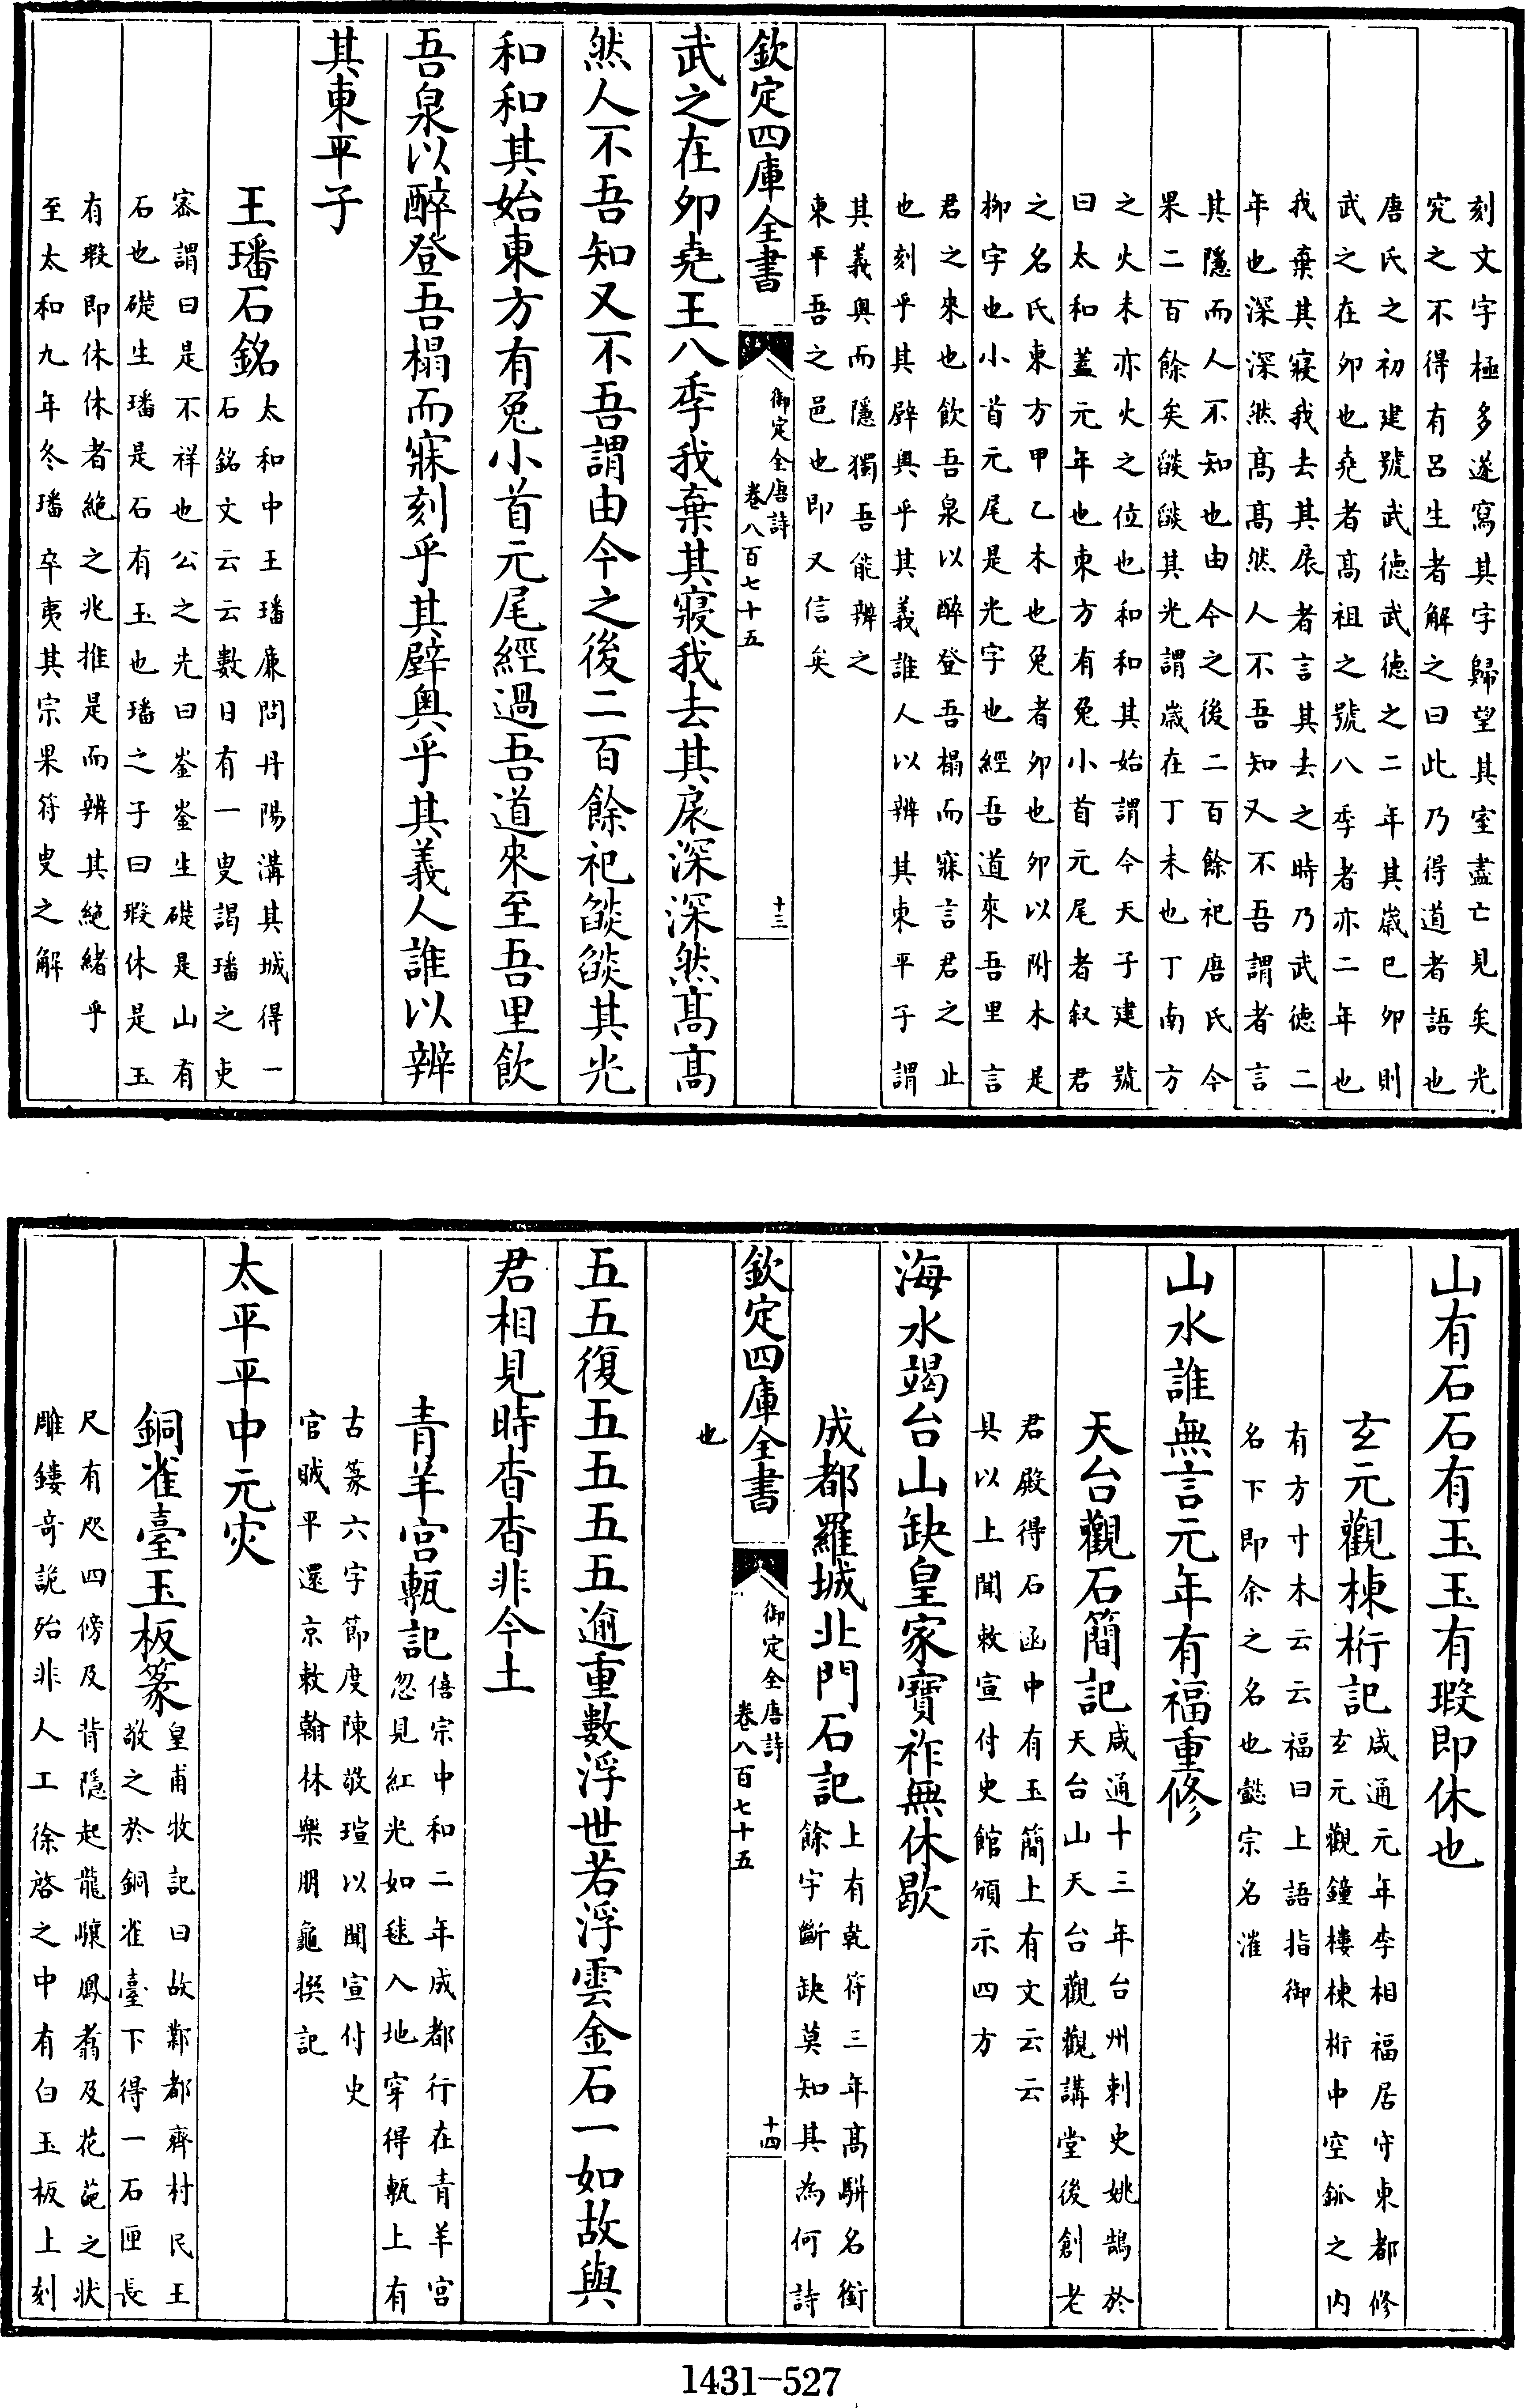 刻文字極多遂寫其字歸望其室盡亡見矣光
究之不得有呂生者解之曰此乃得道者語也
唐氏之初建號武德武德之二年其歲已卯則
武之在卯也堯者高祖之號八季者亦二年也
我棄其寢我去其扆者言其去之時乃武德二
年也深深然高高然人不吾知又不吾謂者言
其隱而人不知也由今之後二百餘祀唐氏今
果二百餘矣燄燄其光謂歲在丁未也丁南方
之火未亦火之位也和和其始謂今天子建號
曰太和蓋元年也東方有兔小首元尾者叙君
之名氏東方甲乙木也兔者卯也卯以附木是
柳字也小首元尾是光字也經吾道來吾里言
君之來也飲吾泉以醉登吾榻而寐言君之止
也刻乎其辟奧乎其義誰人以辨其東平子謂
其義奧而隱獨吾能辨之
東平吾之邑也即又信矣
欽定四庫全書
御定全唐詩
卷八百七十五
十三
武之在卯堯王八季我棄其寢我去其扆深深然高高
然人不吾知又不吾謂由今之後二百餘祀燄燄其光
和和其始東方有兔小首元尾經過吾道來至吾里飲
吾泉以醉登吾榻而寐刻乎其壁奧乎其義人誰以辨
其東平子
王璠石銘
太和中王璠廉問丹陽溝其城得一
石銘文云云數日有一叟謁璠之吏
密謂曰是不祥也公之先曰崟崟生礎是山有
石也礎生璠是石有玉也璠之子曰瑕休是玉
有瑕即休休者絶之兆推是而辨其絶緒乎
至太和九年冬璠卒夷其宗果符叟之解
山有石石有玉玉有瑕即休也
玄元觀棟桁記
咸通元年李相福居守東都修
玄元觀鐘樓棟桁中空鈲之内
有方寸木云云福曰上語指御
名下即余之名也懿宗名漼
山水誰無言元年有福重修
天台觀石簡記
咸通十三年台州刺史姚鵠於
天台山天台觀觀講堂後創老
君殿得石函中有玉簡上有文云云
具以上聞敕宣付史館頒示四方
海水竭台山缺皇家寶祚無休歇
成都羅城北門石記
上有乾符三年高駢名銜
餘字斷缺莫知其為何詩
欽定四庫全書
御定全唐詩
卷八百七十五
十四
也
五五復五五五五逾重數浮世若浮雲金石一如故與
君相見時杳杳非今土
青羊宫甎記
僖宗中和二年成都行在青羊宫
忽見紅光如毬入地穿得甎上有
古篆六字節度陳敬瑄以聞宣付史
官賊平還京敕翰林樂朋龜撰記
太平平中元灾
銅雀臺玉板篆
皇甫牧記曰故鄴都齊村民王
敬之於銅雀臺下得一石匣長
尺有咫四傍及背隱起龍驤鳳翥及花葩之狀
雕鏤奇詭殆非人工徐啓之中有白玉板上刻
1431—527